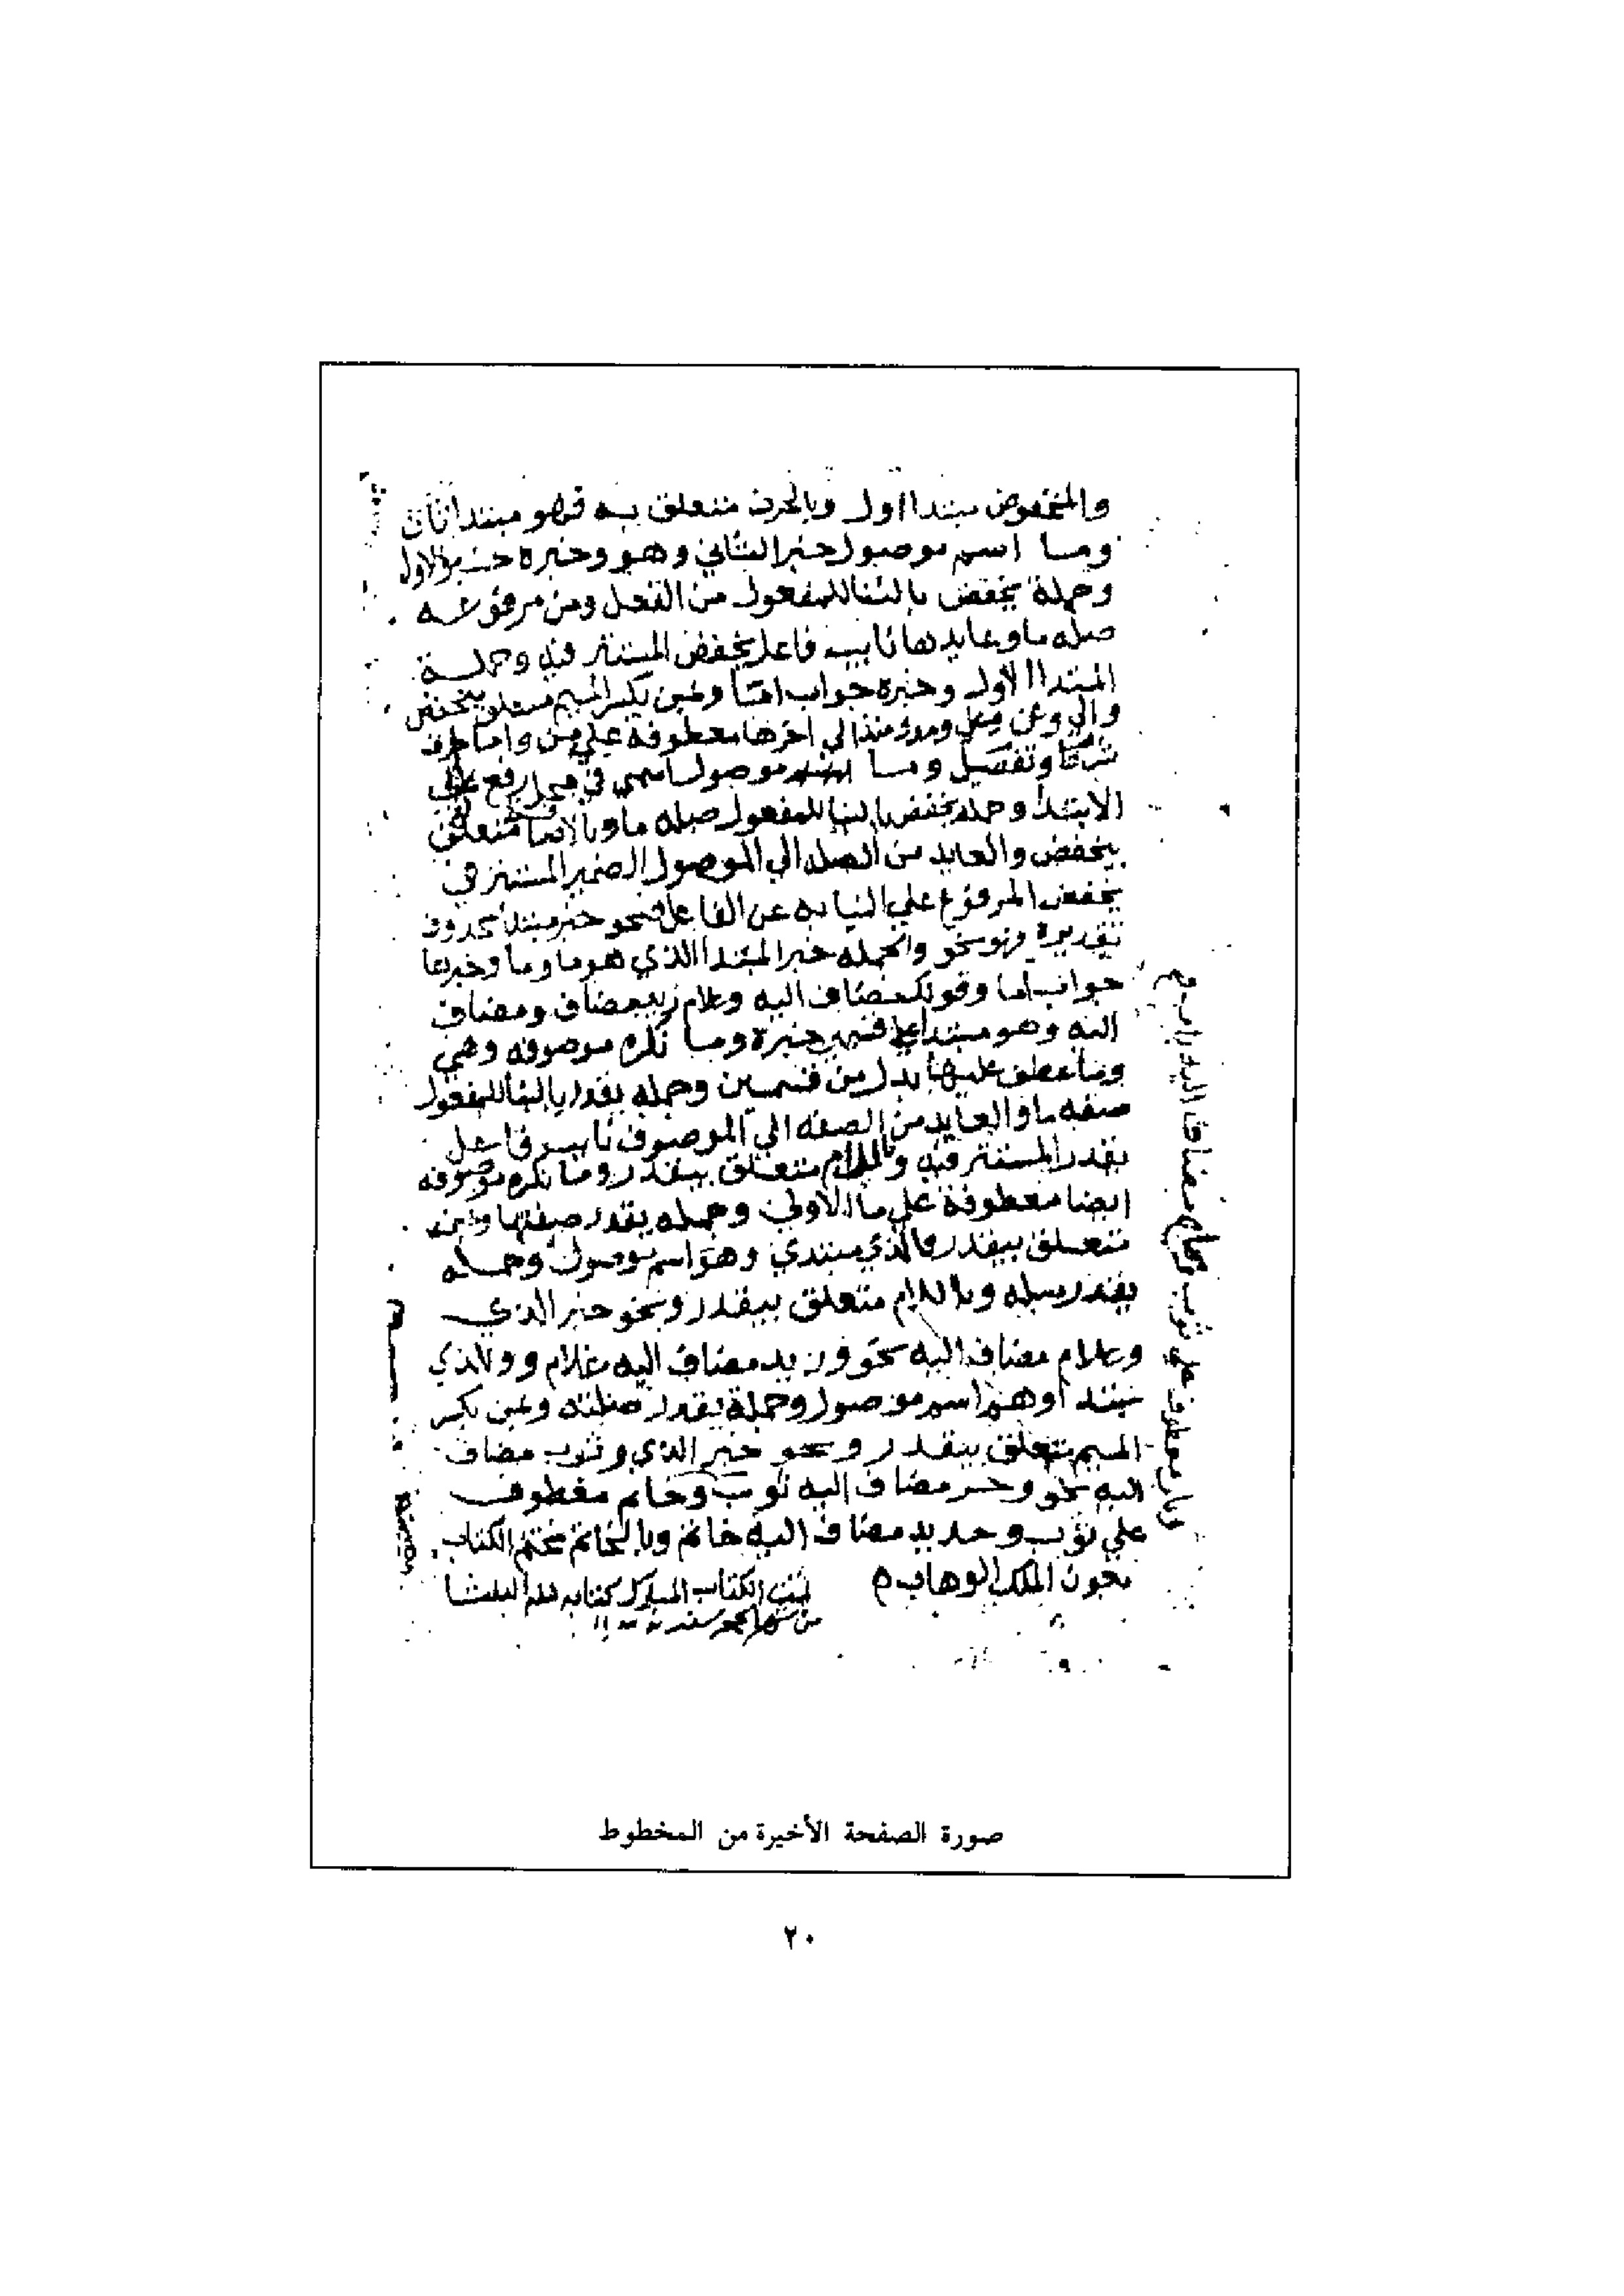 والمخفوض مبتدا اول وبالحرف متعلق به فهو مبتدا ثان
وما اسم موصول خبر الثاني وهو وخبره خبر الاول
وجملة يخفض بالبنا للمفعول من الفعل ومن مرفوعه
صله ما وعايدها نايب فاعل يخفض المستتر فيه وجملة
المبتدا الاول وخبره جواب اما وبمن بكسر الميم متعلق بيخفض
والي وعن وعلي ومذ ومنذ الي اخرها معطوفة علي من واما حرف
شرط وتفصيل وما موصول اسمي في محل رفع علي
الابتدا وجمله يخفض بالبنا للمفعول صله ما وبالاضافة متعلق
بيخفض والعايد من الصله الي الموصول الضمير المستتر في
يخفض المرفوع علي النيابه عن الفاعل فنحو خبر مبتدا محذوف
تقديره وهو نحو والجمله خبر المبتدا الذي هو ما وما وخبرها
جواب اما وقولك مضاف اليه وغلام زيد مضاف ومضاف
اليه وهو مبتدا علي قسمين خبره وما نكره موصوفه وهي
وما عطف عليها بدل من قسمين وجمله يقدر بالبنا للمفعول
صفه ما والعايد من الصفه الي الموصوف نايب فاعل
يقدر المستتر فيه وباللام متعلق بيقدر وما نكره موصوفه
ايضا معطوفة علي ما الاولي وجمله يقدر صفتها وبمن
متعلق بيقدر فالذي مبتدي وهو اسم موصول وجمله
يقدر صله وباللام متعلق بيقدر ونحو خبر الذي
وغلام مضاف اليه نحو وزيد مضاف اليه غلام ووالذي
مبتدا وهو اسم موصول وجملة يقدر صلته وبمن بكسر
الميم متعلق بيقدر ونحو خبر الذي وثوب مضاف
اليه نحو وخز مضاف اليه ثوب وخاتم معطوف
علي ثوب وحديد مضاف اليه خاتم وبالخاتم نختم الكتاب
بعون الملك الوهاب
الكتاب المبارك كتابه
وباب معطوف علي ثوب وساج مضاف اليه باب
صورة الصفحة الأخيرة من المخطوط
٢٠